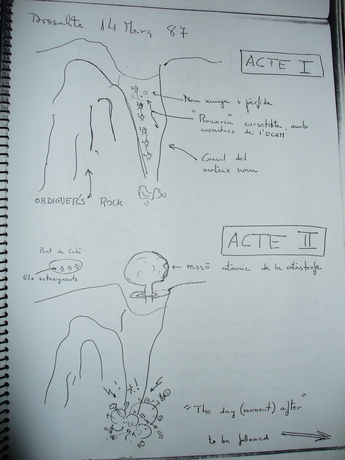 Dissabte 14 Març 87
ACTE I
Nou xungo i pèrfida
"Rowaven" convertible, amb
mostres de l'OCAM
Canal del
mateix nom
ORDIGUER'S ROCK
ACTE II
Punt de Caiú
Els estranguts
ressò atòmic de la catàstrofe
"The day (moment) after"
to be followed